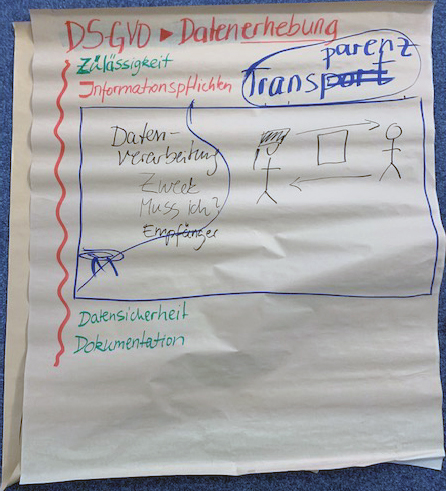 DS-GVO ▸ Datenerhebung
Zulässigkeit
Informationspflichten
Transport
parenz
Daten-
verarbeitung
Zweck
Muss ich?
Empfänger
Datensicherheit
Dokumentation